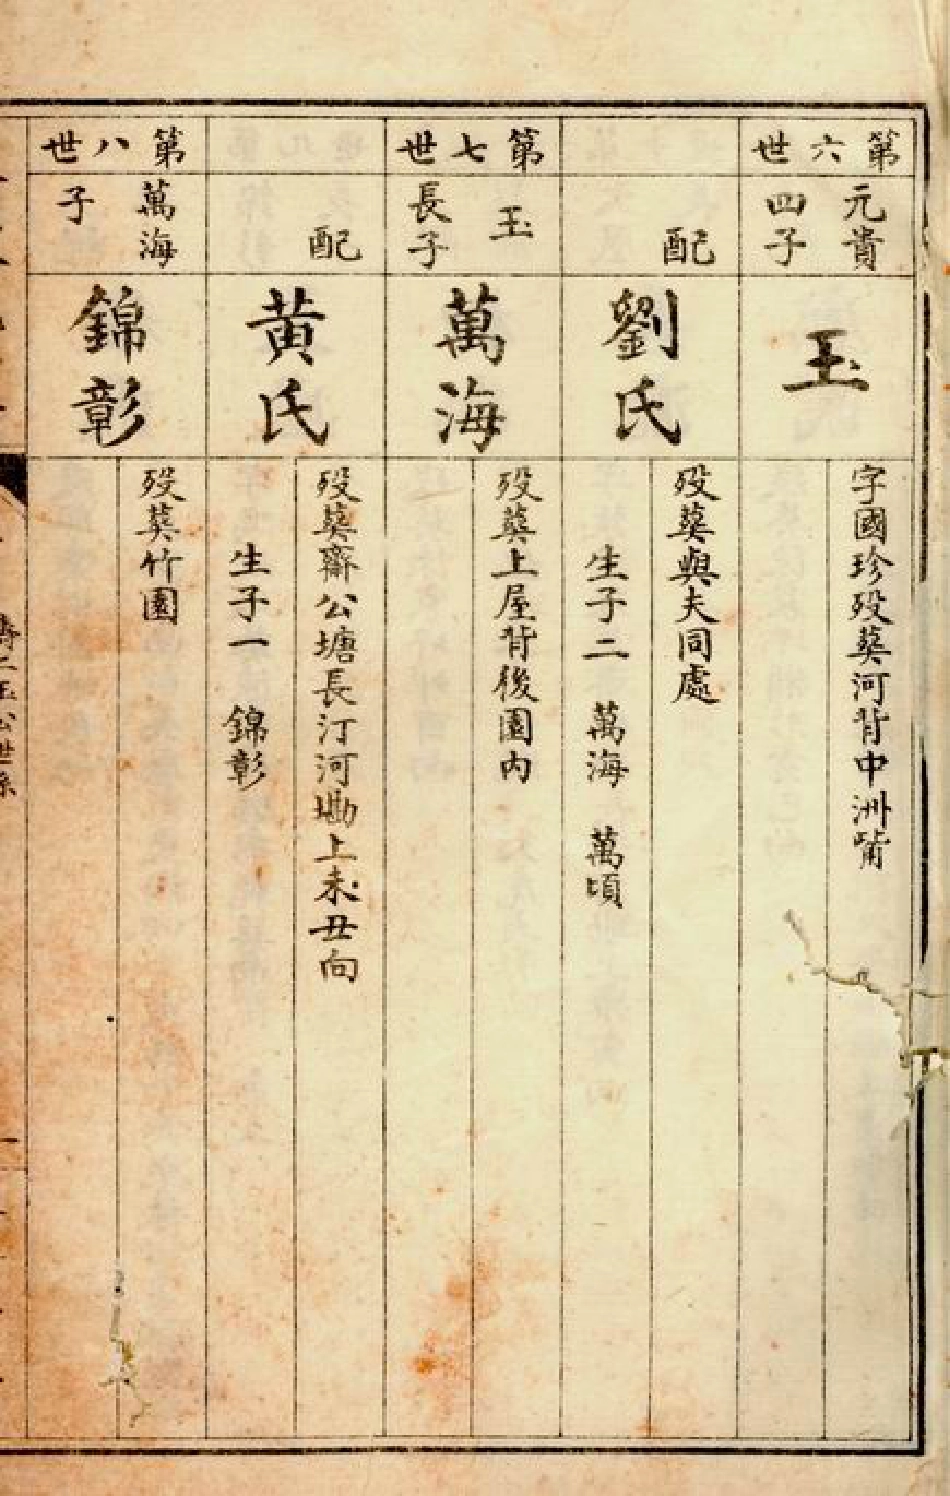 第六世
元貴
四子
玉
字國珍歿葬河背中洲觜
配
劉氏
歿葬與夫同處
生子二 萬海 萬頃
第七世
玉
長子
萬海
歿葬上屋背後園內
配
黃氏
歿葬辭公塘長汀河墈上未丑向
生子一 錦彰
第八世
萬海
子
錦彰
歿葬竹園
二玉公世系